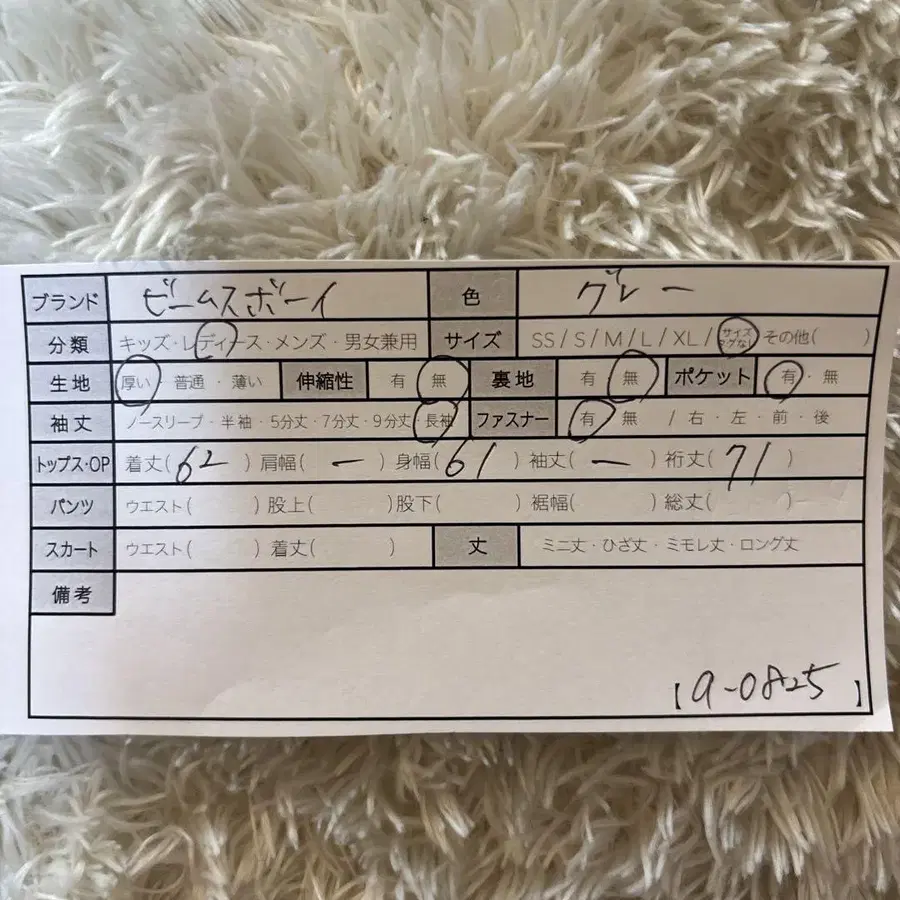 ブランド ビームスボーイ 色 グレー
分類 キッズ・レディース・メンズ・男女兼用 サイズ SS / S / M / L / XL / サイズタグなし その他( )
生地 厚い・普通・薄い 伸縮性 有・無 裏地 有・無 ポケット 有・無
袖丈 ノースリーブ・半袖・5分丈・7分丈・9分丈・長袖 ファスナー 有・無 / 右・左・前・後
トップス・OP 着丈( 62 ) 肩幅( ー ) 身幅( 61 ) 袖丈( ー ) 裄丈( 71 )
パンツ ウエスト( ) 股上( ) 股下( ) 裾幅( ) 総丈( )
スカート ウエスト( ) 着丈( ) 丈 ミニ丈・ひざ丈・ミモレ丈・ロング丈
備考
【a-0825】